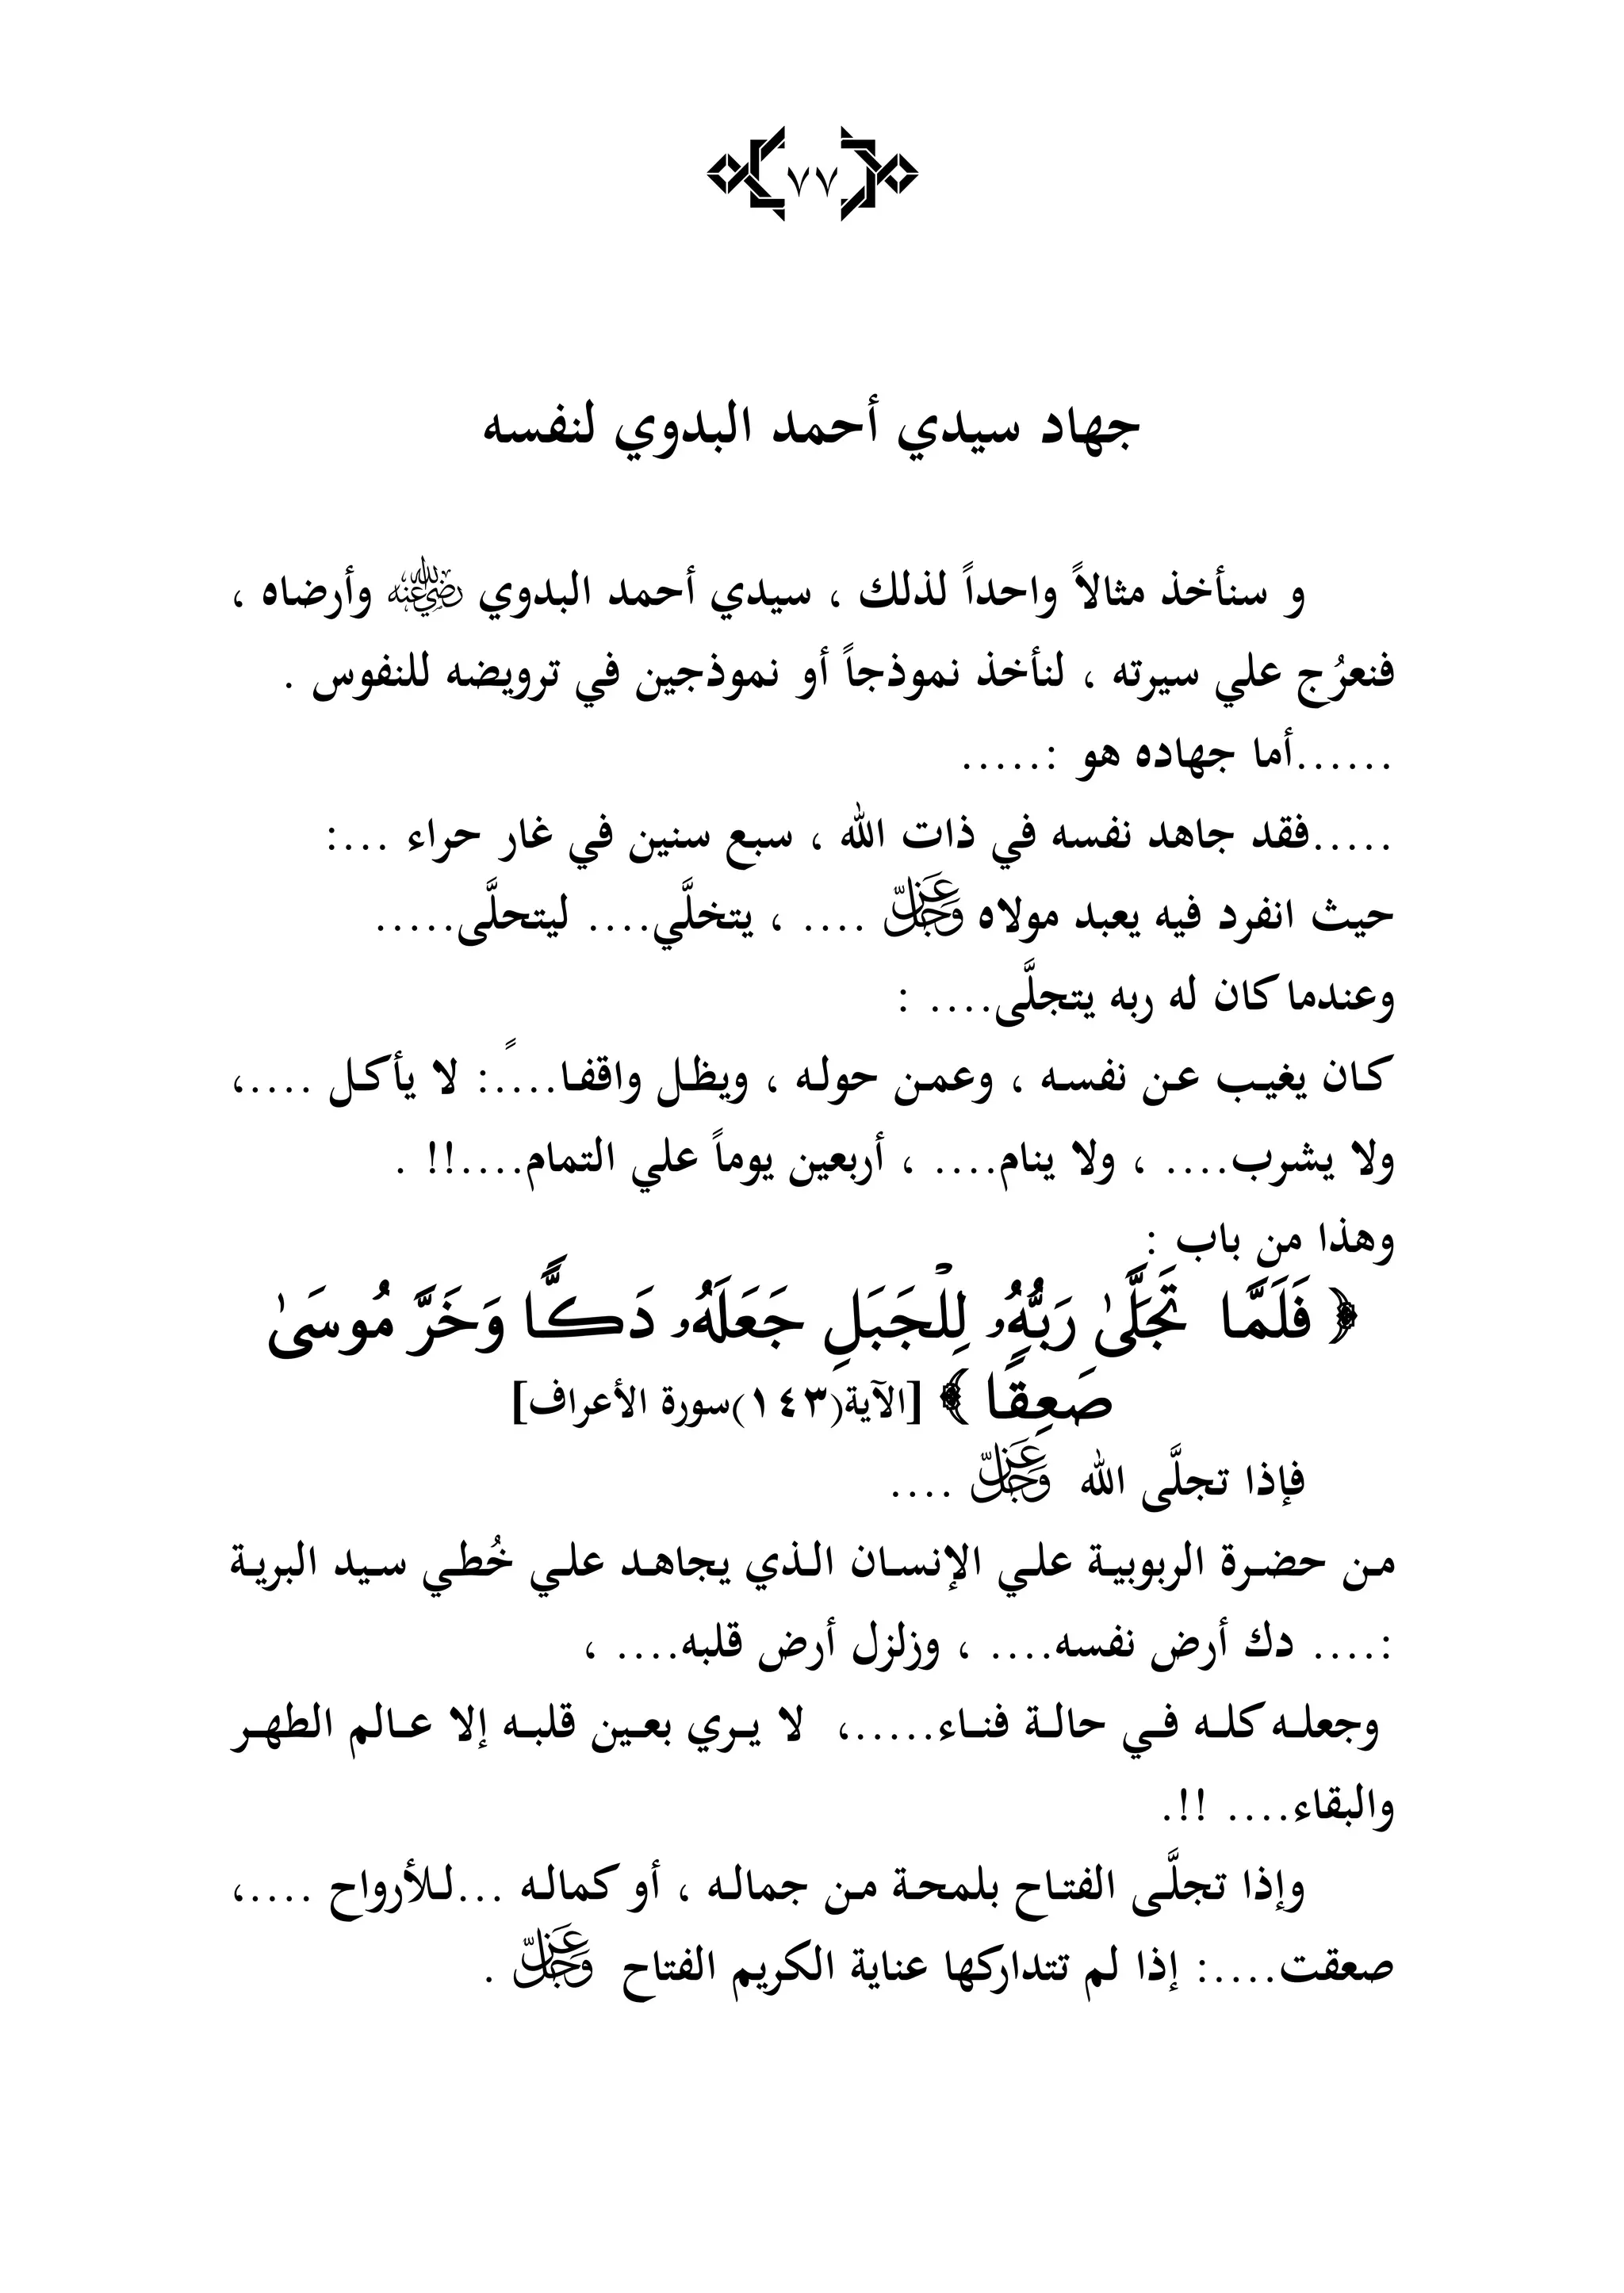 ٧٧
جهاد سيدي أحمد البدوي لنفسه
و سنأخذ مثالاً واحداً لذلك ، سيدي أحمد البدوي رضي الله عنه وأرضاه ،
فنعرُج علي سيرته ، لنأخذ نموذجاً أو نموذجين في ترويضه للنفوس .
......أما جهاده هو :.....
.....فقد جاهد نفسه في ذات الله ، سبع سنين في غار حراء ...:
حيث انفرد فيه يعبد مولاه عز وجل .... ، يتخلَّي.... ليتحلَّى.....
وعندما كان له ربه يتجلَّى.... :
كان يغيب عن نفسه ، وعمن حوله ، ويظل واقفاً....: لا يأكل ....،
ولا يشرب.... ، ولا ينام.... ، أربعين يوماً علي التمام....!! .
وهذا من باب :
﴿ فَلَمَّا تَجَلَّىٰ رَبُّهُۥ لِلْجَبَلِ جَعَلَهُۥ دَكًّا وَخَرَّ مُوسَىٰ
صَعِقًا ﴾ [الآية(١٤٣)سورة الأعراف]
فإذا تجلَّى الله عز وجل ....
من حضرة الربوبية علي الإنسان الذي يجاهد علي خُطي سيد البرية
:.... دك أرض نفسه.... ، وزلزل أرض قلبه.... ،
وجعله كله في حالة فناء.....، لا يري بعين قلبه إلا عالم الطهر
والبقاء.... !!.
وإذا تجلَّى الفتاح بلمحة من جماله ، أو كماله ...للأرواح ....،
صعقت....: إذا لم تتداركها عناية الكريم الفتاح عز وجل .